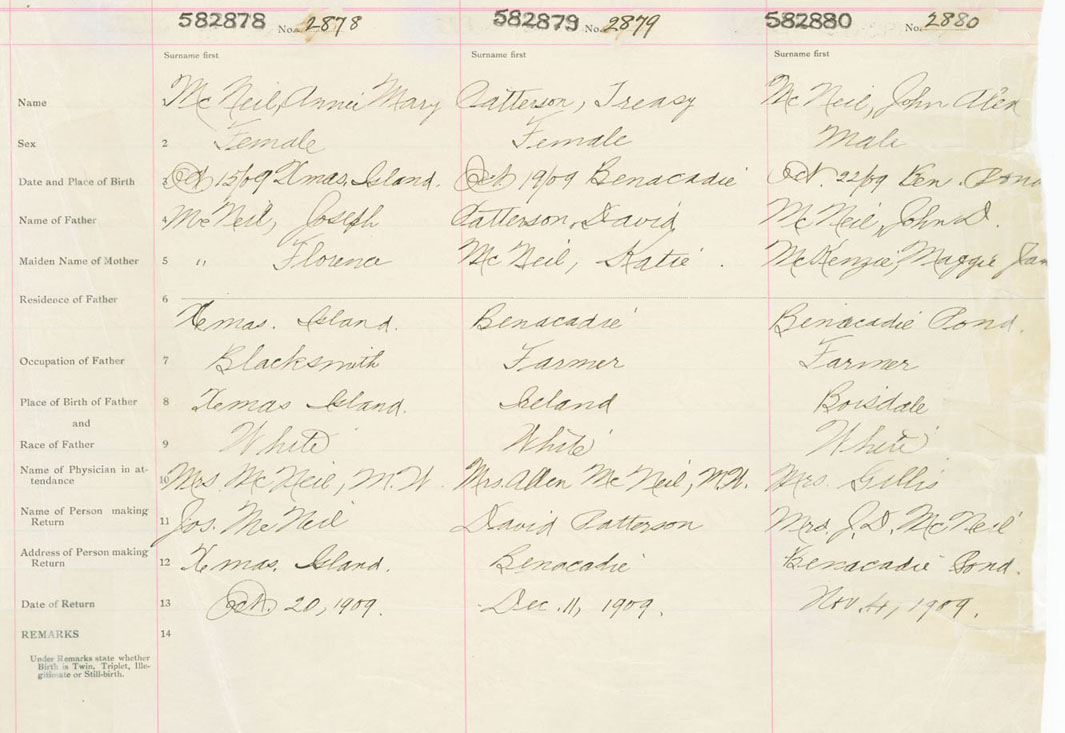 582878 No. 2878 582879 No. 2879 582880 No. 2880
Surname first Surname first Surname first
Name McNeil, Annie Mary Patterson, Treasy McNeil, John Alex
Sex 2 Female Female Male
Date and Place of Birth 3 Oct 15/09 Xmas. Island. Oct 19/09 Benacadie Oct. 22/09 Ben. Pond
Name of Father 4 McNeil, Joseph Patterson, David McNeil, John D.
Maiden Name of Mother 5 " Florence McNeil, Katie. McKenzie, Maggie Jan
Residence of Father 6
Xmas. Island. Benacadie Benacadie Pond.
Occupation of Father 7 Blacksmith Farmer Farmer
Place of Birth of Father 8 Xmas Island. Iceland Boisdale
and
Race of Father 9 White White White
Name of Physician in at-
tendance 10 Mrs. McNeil, M.W. Mrs. Allen McNeil, M.W. Mrs. Gillis
Name of Person making
Return 11 Jos. McNeil David Patterson Mrs. J. D. McNeil
Address of Person making
Return 12 Xmas. Island. Benacadie Benacadie Pond.
Date of Return 13 Oct. 20, 1909. Dec. 11, 1909. Nov. 4, 1909.
REMARKS 14
Under Remarks state whether
Birth is Twin, Triplet, Ille-
gitimate or Still-birth.